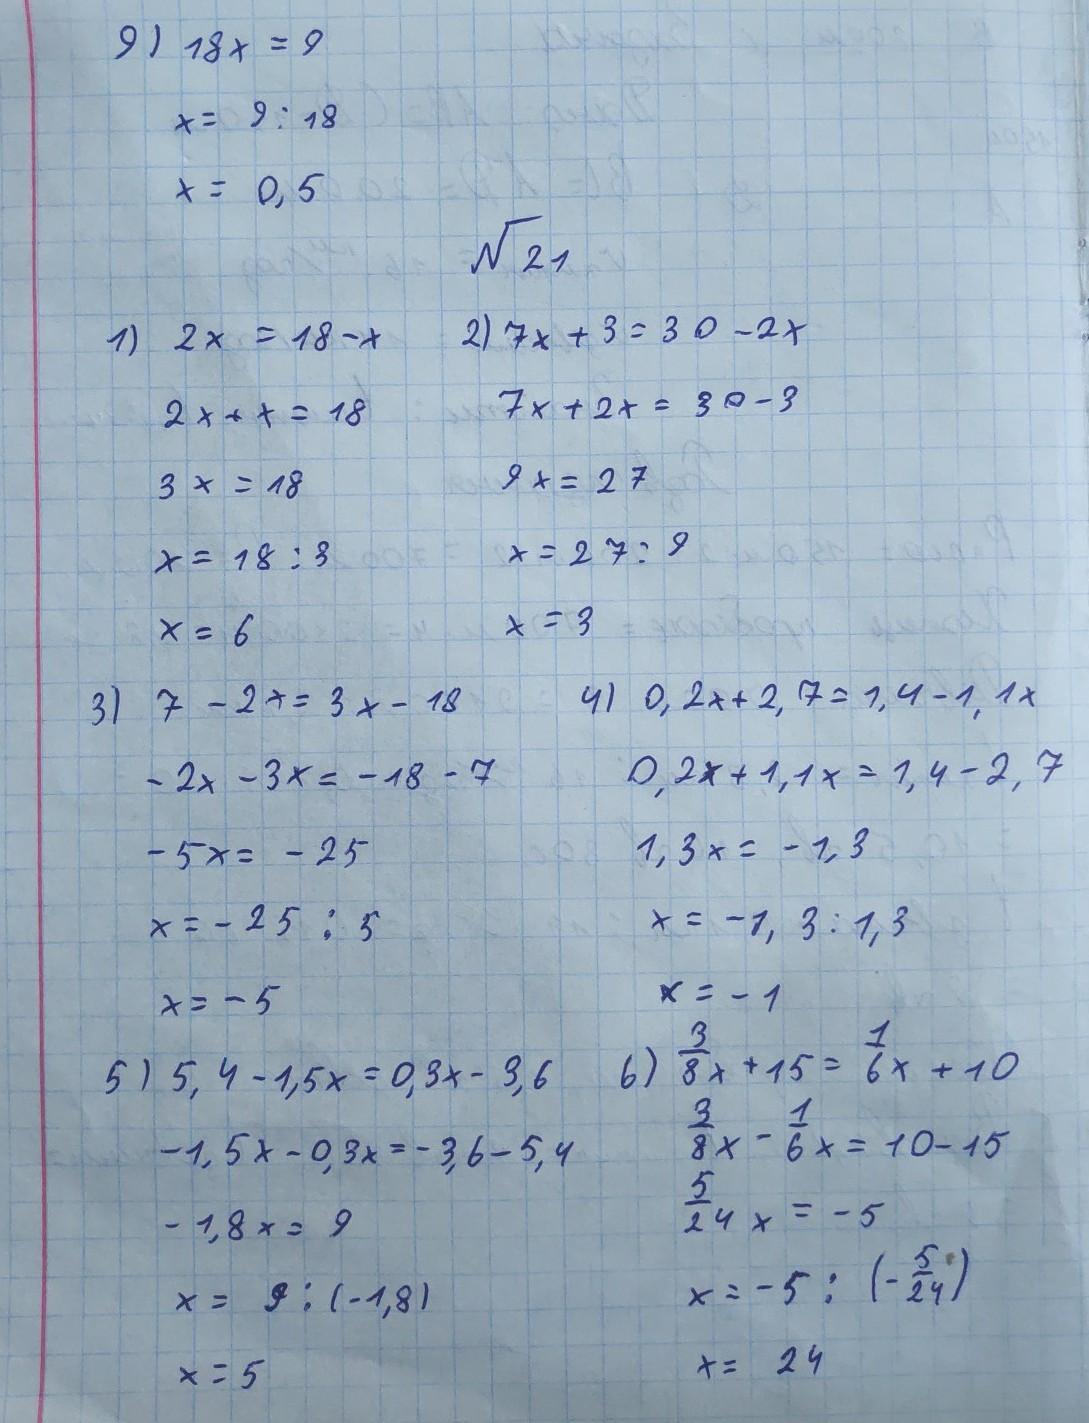 9) 18x = 9
x = 9 : 18
x = 0,5
№ 21
1) 2x = 18 - x
2x + x = 18
3x = 18
x = 18 : 3
x = 6
2) 7x + 3 = 30 - 2x
7x + 2x = 30 - 3
9x = 27
x = 27 : 9
x = 3
3) 7 - 2x = 3x - 18
-2x - 3x = -18 - 7
-5x = -25
x = -25 : 5
x = -5
4) 0,2x + 2,7 = 1,4 - 1,1x
0,2x + 1,1x = 1,4 - 2,7
1,3x = -1,3
x = -1,3 : 1,3
x = -1
5) 5,4 - 1,5x = 0,3x - 3,6
-1,5x - 0,3x = -3,6 - 5,4
-1,8x = 9
x = 9 : (-1,8)
x = 5
6) 3/8x + 15 = 1/6x + 10
3/8x - 1/6x = 10 - 15
5/24x = -5
x = -5 : (-5/24)
x = 24